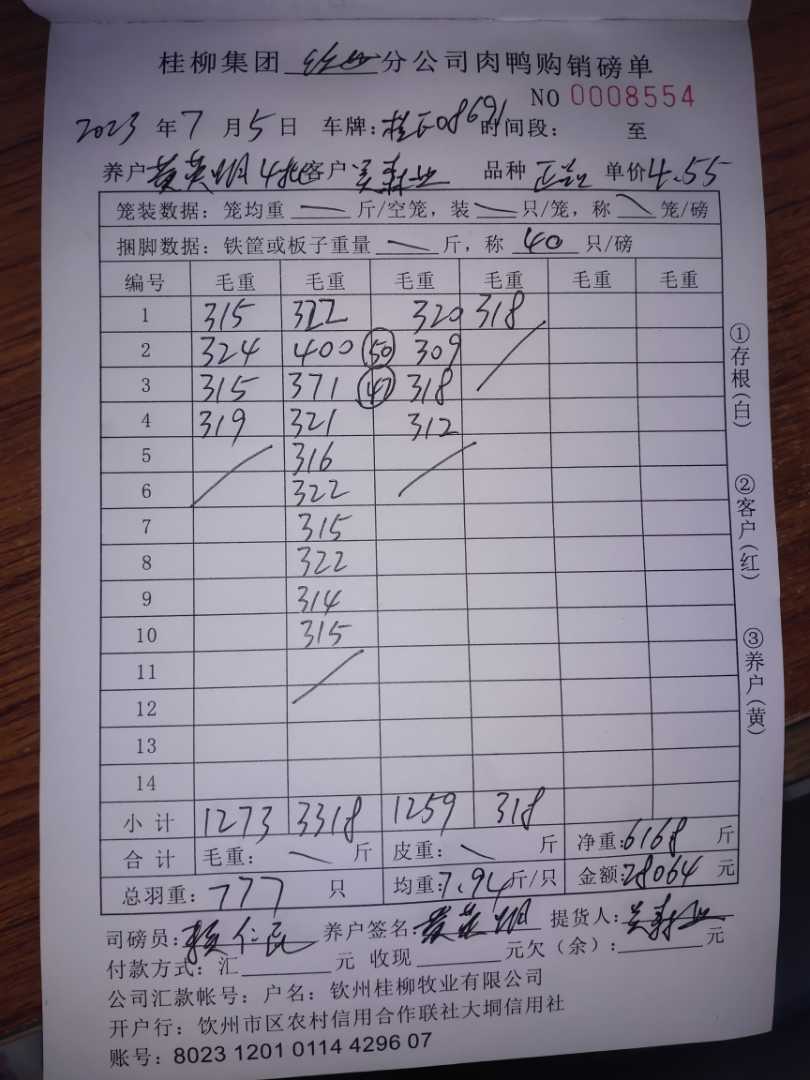 桂柳集团 钦州 分公司肉鸭购销磅单
NO 0008554
2023 年 7 月 5 日 车牌: 08691 时间段: 至
养户 黄英明 4批 客户 吴寿业 品种 单价 4.55
笼装数据: 笼均重 — 斤/空笼, 装 — 只/笼, 称 \ 笼/磅
捆脚数据: 铁筐或板子重量 — 斤, 称 40 只/磅
编号 毛重 毛重 毛重 毛重 毛重 毛重
1 315 322 320 318
2 324 400 50 309
3 315 371 47 318
4 319 321 312
5 316
6 322
7 315
8 322
9 314
10 315
11
12
13
14
小计 1273 3318 1259 318
合计 毛重: \ 斤 皮重: \ 斤 净重: 6168 斤
总羽重: 777 只 均重: 7.94 斤/只 金额: 28064 元
司磅员: 养户签名: 黄英明 提货人: 吴寿业
付款方式: 汇 元 收现 元欠(余): 元
公司汇款帐号: 户名: 钦州桂柳牧业有限公司
开户行: 钦州市区农村信用合作联社大垌信用社
账号: 8023 1201 0114 4296 07
①存根(白) ②客户(红) ③养户(黄)